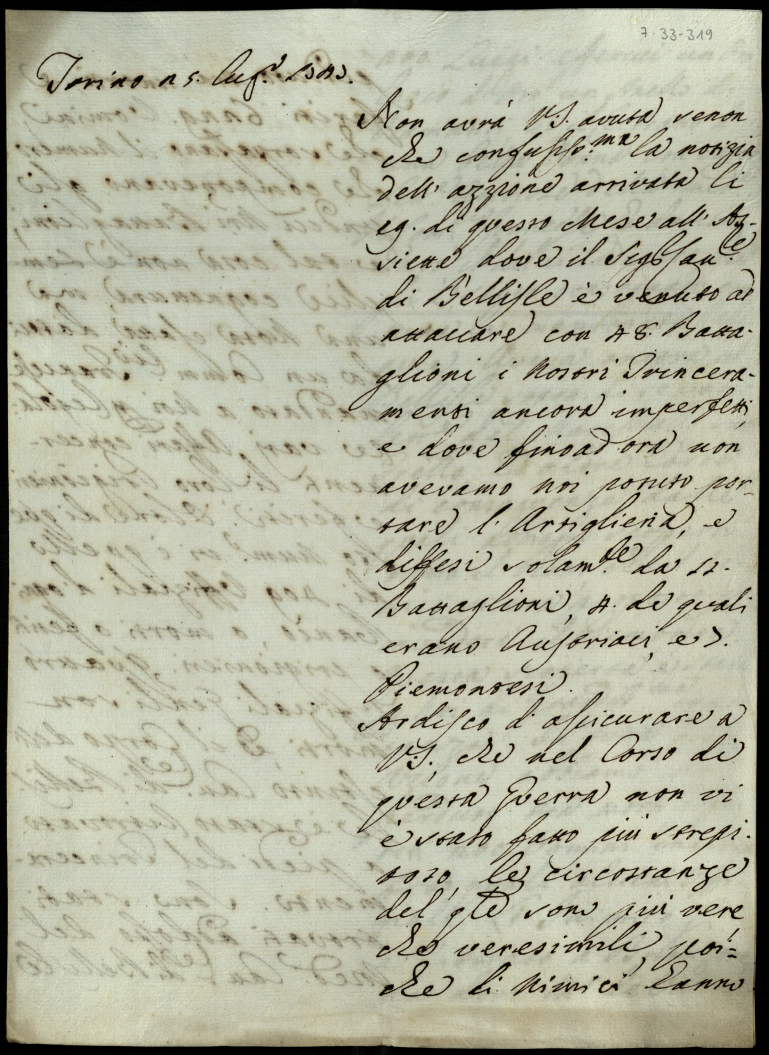 7-33-319
Torino 25. Lug.º 1747.
Non avrà V.S. avuta senon
che confusiss.ma la notizia
dell'azzione arrivata li
19. di questo Mese all'As-
siette dove il Sig.r Cau.re
di Bellisle è venuto ad
attaccare con 48. Batta-
glioni i Nostri Trincera-
menti ancora imperfetti,
e dove finoad'ora non
avevamo noi potuto por-
tare l'Artiglieria, e
diffesi solam.te da 11.
Battaglioni, 4. de quali
erano Austriaci, e 7.
Piemontesi.
Ardisco d'assicurare a
V.S. che nel Corso di
questa Guerra non vi
è stato fatto più strepi-
toso, le circostanze
del q.le sono più vere
che veresimili, poi=
che li Nimici hanno